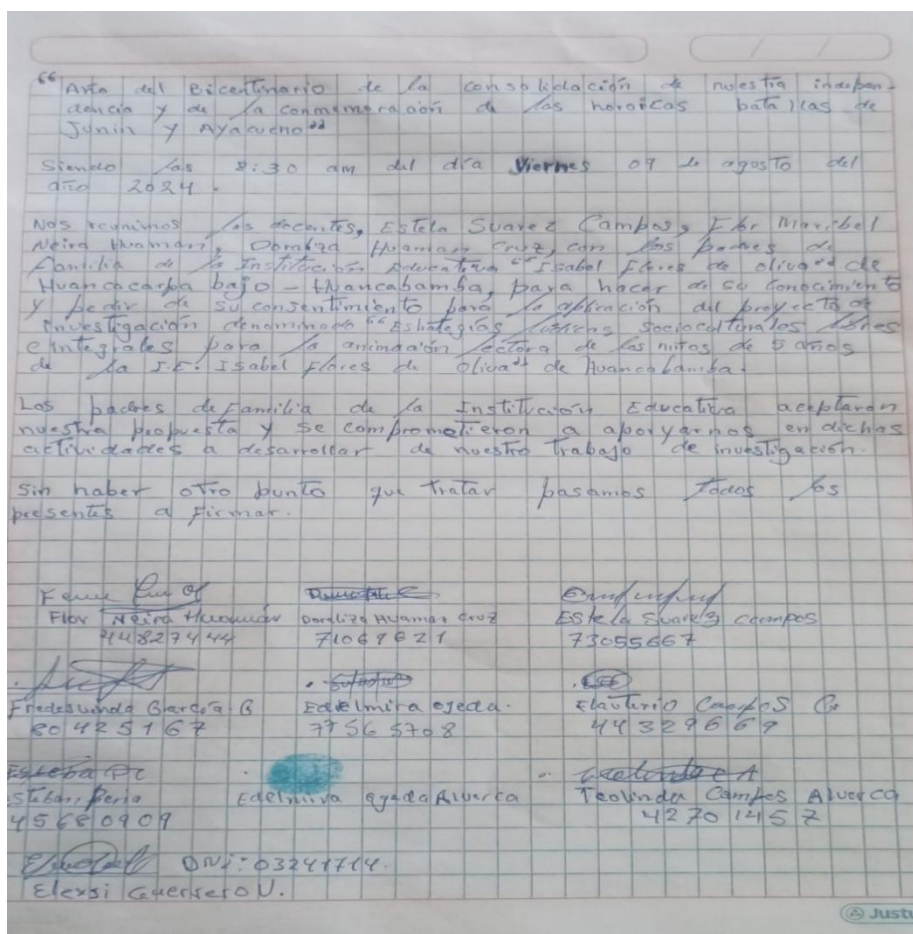 "Año del Bicentinario de la consolidación de nuestra indepen-
dencia y de la conmemoración de las heroicas batallas de
Junín y Ayacucho"
Siendo las 8:30 am del día Viernes 09 de agosto del
año 2024.
Nos reunimos las docentes, Estela Suarez Campos, Flor Maribel
Neira Huamán, Doraliza Huaman Cruz, con los padres de
Familia de la Institución Educativa "Isabel Flores de Oliva" de
Huancacarpa bajo - Huancabamba, para hacer de su conocimiento
y pedir de su consentimiento para la aplicación del proyecto de
investigación denominado "Estrategias socioculturales libres
e integrales para la animación lectora de los niños de 5 años
de la I.E. Isabel Flores de Oliva" de Huancabamba.
Los padres de Familia de la Institución Educativa aceptaron
nuestra propuesta y se comprometieron a aporyarnos en dichas
actividades a desarrollar de nuestro trabajo de investigación.
Sin haber otro punto que tratar pasamos todos los
presentes a firmar.
Flor Neira Huamán Doraliza Huaman Cruz Estela Suarez Campos
44827444 71069621 73055667
Fredesvinda García B Edelmira Ojeda. Elauterio Campos C.
80425167 77565708 44329669
Esteban Peña Edelmira Ojeda Alverca Teolinda Campos Alverca
45680909 42701457
DNi: 03241714.
Elexsi Guerrero U.
Justu